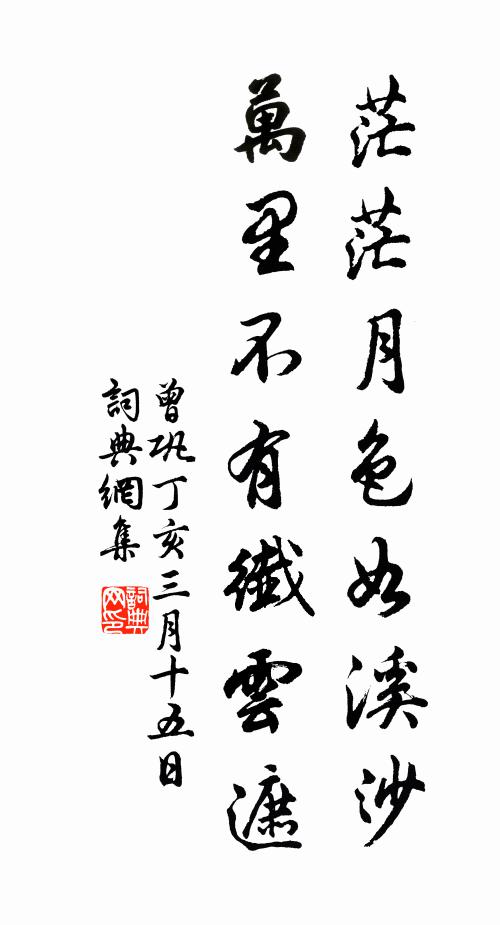 茫茫月色如溪沙
萬里不有纖雲遮
曾巩丁亥三月十五日
詞典網集
詞典
网印